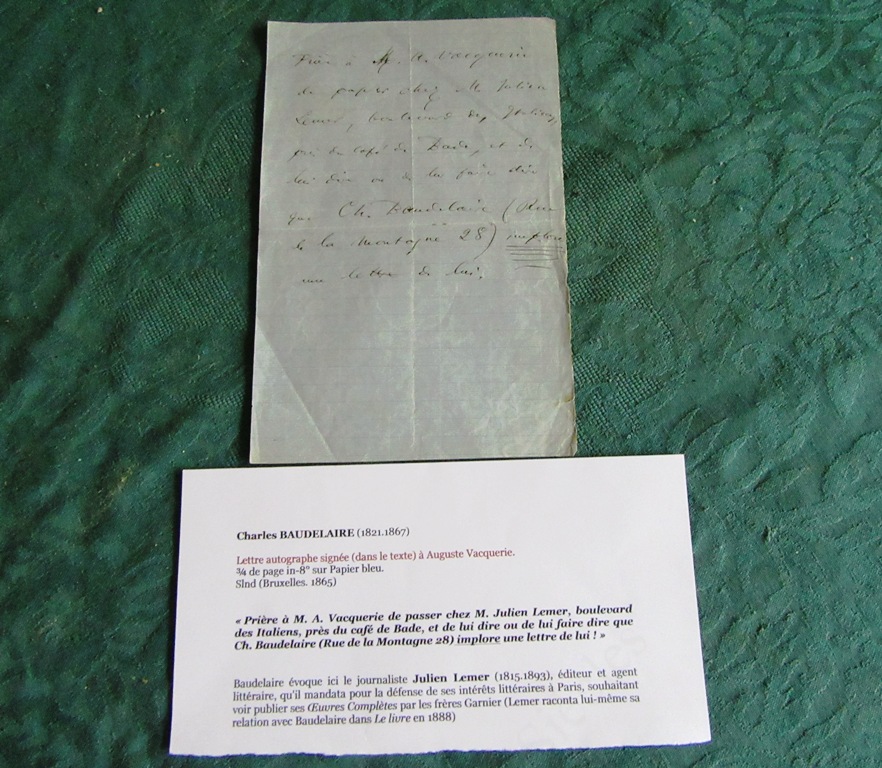 Prière à M. A. Vacquerie
de passer chez M. Julien
Lemer, boulevard des Italiens,
près du café de Bade, et de
lui dire ou de lui faire dire
que Ch. Baudelaire (Rue
de la Montagne 28) implore
une lettre de lui.
Charles BAUDELAIRE (1821.1867)
Lettre autographe signée (dans le texte) à Auguste Vacquerie.
¾ de page in-8° sur Papier bleu.
Slnd (Bruxelles. 1865)
« Prière à M. A. Vacquerie de passer chez M. Julien Lemer, boulevard
des Italiens, près du café de Bade, et de lui dire ou de lui faire dire que
Ch. Baudelaire (Rue de la Montagne 28) implore une lettre de lui ! »
Baudelaire évoque ici le journaliste Julien Lemer (1815.1893), éditeur et agent
littéraire, qu'il mandata pour la défense de ses intérêts littéraires à Paris, souhaitant
voir publier ses Œuvres Complètes par les frères Garnier (Lemer raconta lui-même sa
relation avec Baudelaire dans Le livre en 1888)